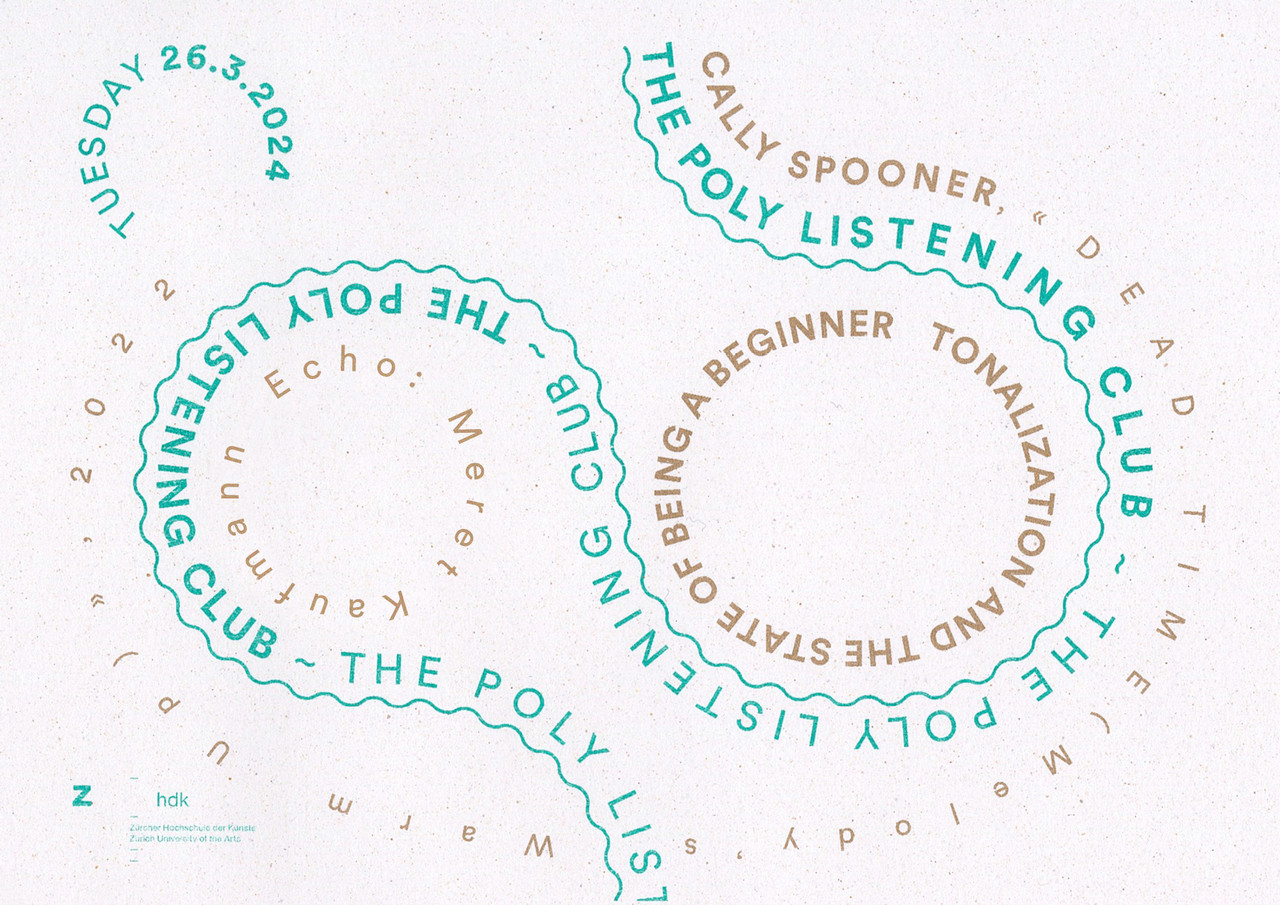 TUESDAY 26.3.2024
CALLY SPOONER, « D E A D. T I M E (Melody’s Warm Up)», 2022
THE POLY LISTENING CLUB ~ THE POLY LISTENING CLUB ~ THE POLY LISTENING CLUB ~ THE POLY LIST
TONALIZATION AND THE STATE OF BEING A BEGINNER
Echo: Meret Kaufmann
Z
hdk
Zürcher Hochschule der Künste
Zurich University of the Arts